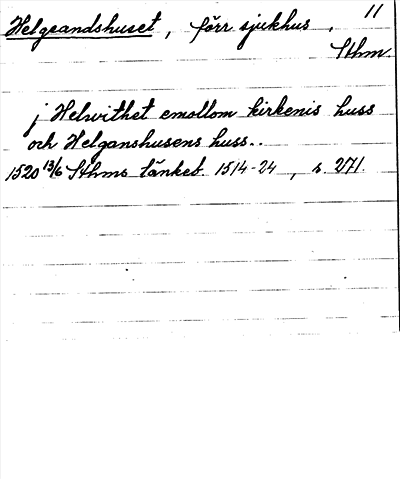 11
Helgeandshuset, förr sjukhus.
Sthm.
j Helwithet emollom kirkenis huss
och Helganshusens huss..
1520 13/6 Sthms tänkeb. 1514-24, s. 271.